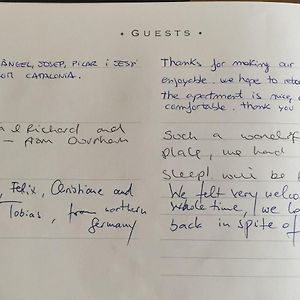 • GUESTS •
ÀNGEL, JOSEP, PILAR i JESÚ
CATALONIA.
Richard and
— from Durham
Felix, Christiane and
Tobias, from northern
Germany
Thanks for making our
enjoyable. we hope to
the apartment is nice,
comfortable. thank you
Such a
place, we had
sleep! will be
We felt very
whole time, we
back in spite of